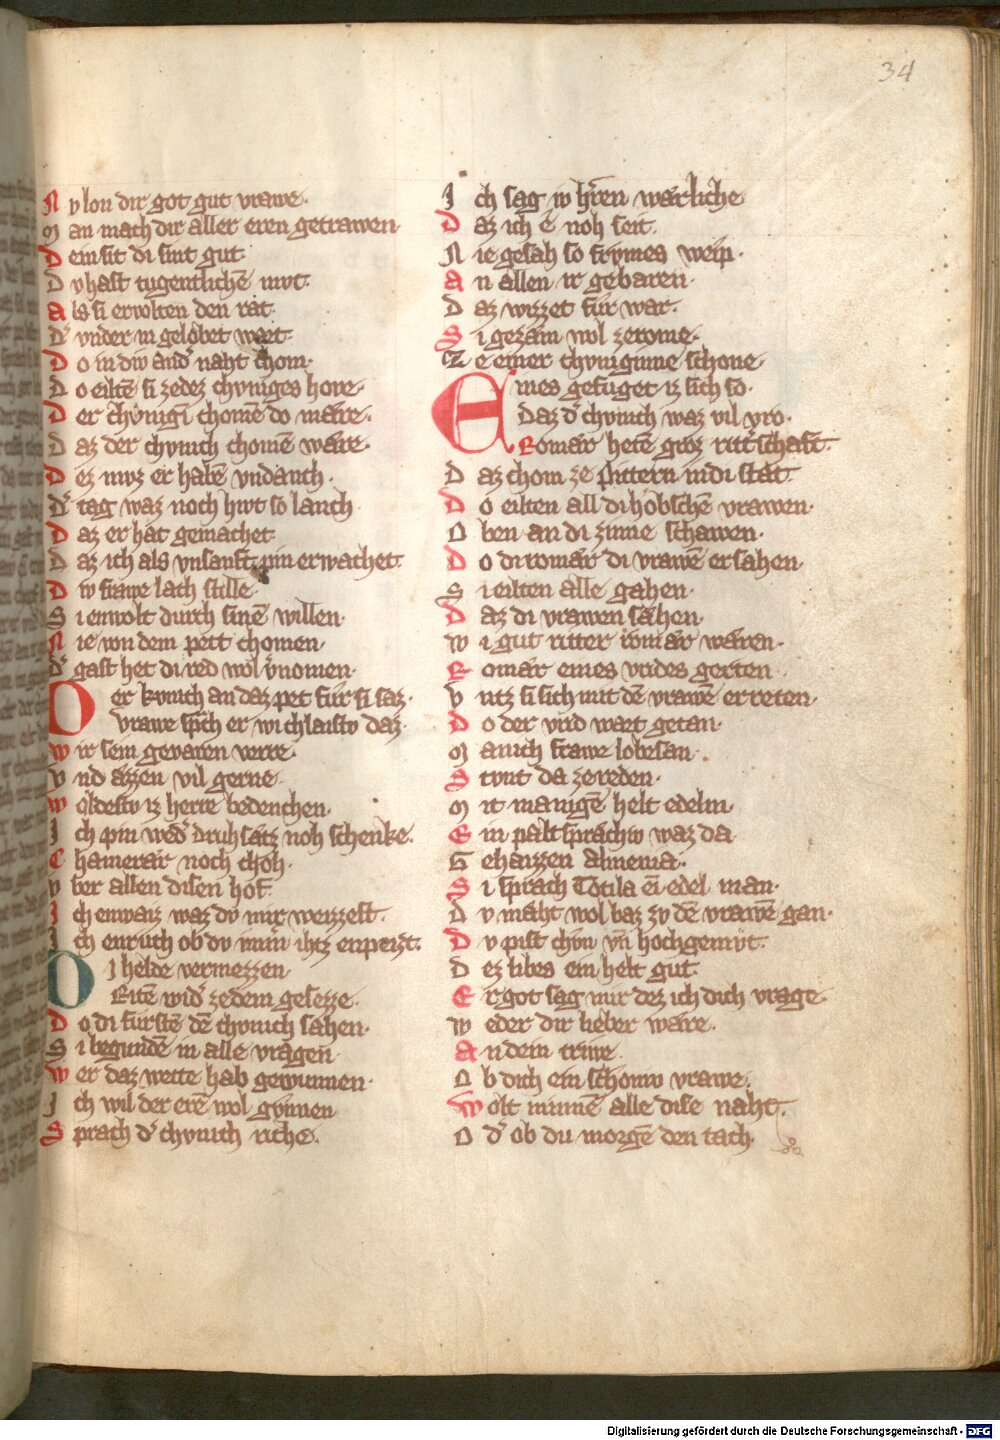 34
N v lon dir got gut vrawe.
M an mach dir aller eren getrawen.
D ein sit di sint gut.
D v hast tugentlichē mvt.
A ls si erwolten den rat.
D' vnder in gelobet wart.
D o in div and' naht chom.
D o eiltē si ze dez chvniges hove.
D er chvnigī chomē do mære.
D az der chvnich chomē wære.
D ez mvz er habē vndanch.
D' tag waz noch hivt so lanch
D az er hat gemachet.
D az ich als vnsanft pin erwachet.
D iv frawe lach stille
S i enwolt durch sinē willen.
N ie von dem pett chomen.
D' gast het di red wol v'nomen.
D er kvnich an daz pet fur si saz.
Vrawe sp͛ch er wi chlaistv daz.
W ir sein gevaren verre.
V nd æzzen vil gerne.
W oldestv iz herre bedenchen.
I ch pin wed' druhsætz noh schenke.
C hamerær noch choh.
V ber allen disen hof.
I ch enwaiz waz dv mir weizzest.
I ch enruch ob dv imm' ihtz enpeizt.
D i helde vermezzen
Ritē wid' ze dem gesezze.
D o di furstē dē chvnich sahen.
S i begundē in alle vragen.
W er daz wette hab gewunnen.
I ch wil der erē wol gvnnen
S prach d' chvnich riche.
I ch sag iv h'ren wærliche
D az ich e noh seit.
N ie gesah so frvmes weip.
A n allen ir gebaren.
D az wizzet fur war.
S i gezæm wol ze rome.
Z e einer chvniginne schone.
E ines gefuget iz sich so.
Daz d' chvnich waz vil vro.
Romær hetē groz ritt'schaft.
D az chom ze Pittern in di stat.
D o eilten all di hobschē vrawen.
O ben an di zinne schawen.
D o di romær di vrawē ersahen.
S i eilten alle gahen.
D az di vrawen sæhen.
W i gut ritter romær wæren.
R omær eines vrides gerten
V ntz si sich mit dē vrawē erreten.
D o der vrid wart getan.
M anich frawe lobesan.
S tvnt da ze reden.
M it manigē helt edeln.
E in palt sprachiv waz da
G ehaizzen almenia.
S i sprach Totila ei edel man.
D v maht wol baz zv dē vrawē gan.
D v pist chvn vn̄ hochgemvt.
D ez libes ein helt gut.
E r got sag mir dez ich dich vrage.
W eder dir lieber wære.
A n dein triwe.
O b dich ein schoniv vrawe.
W olt minnē alle dise naht.
O d' ob du morgē den tach.
Digitalisierung gefördert durch die Deutsche Forschungsgemeinschaft - DFG